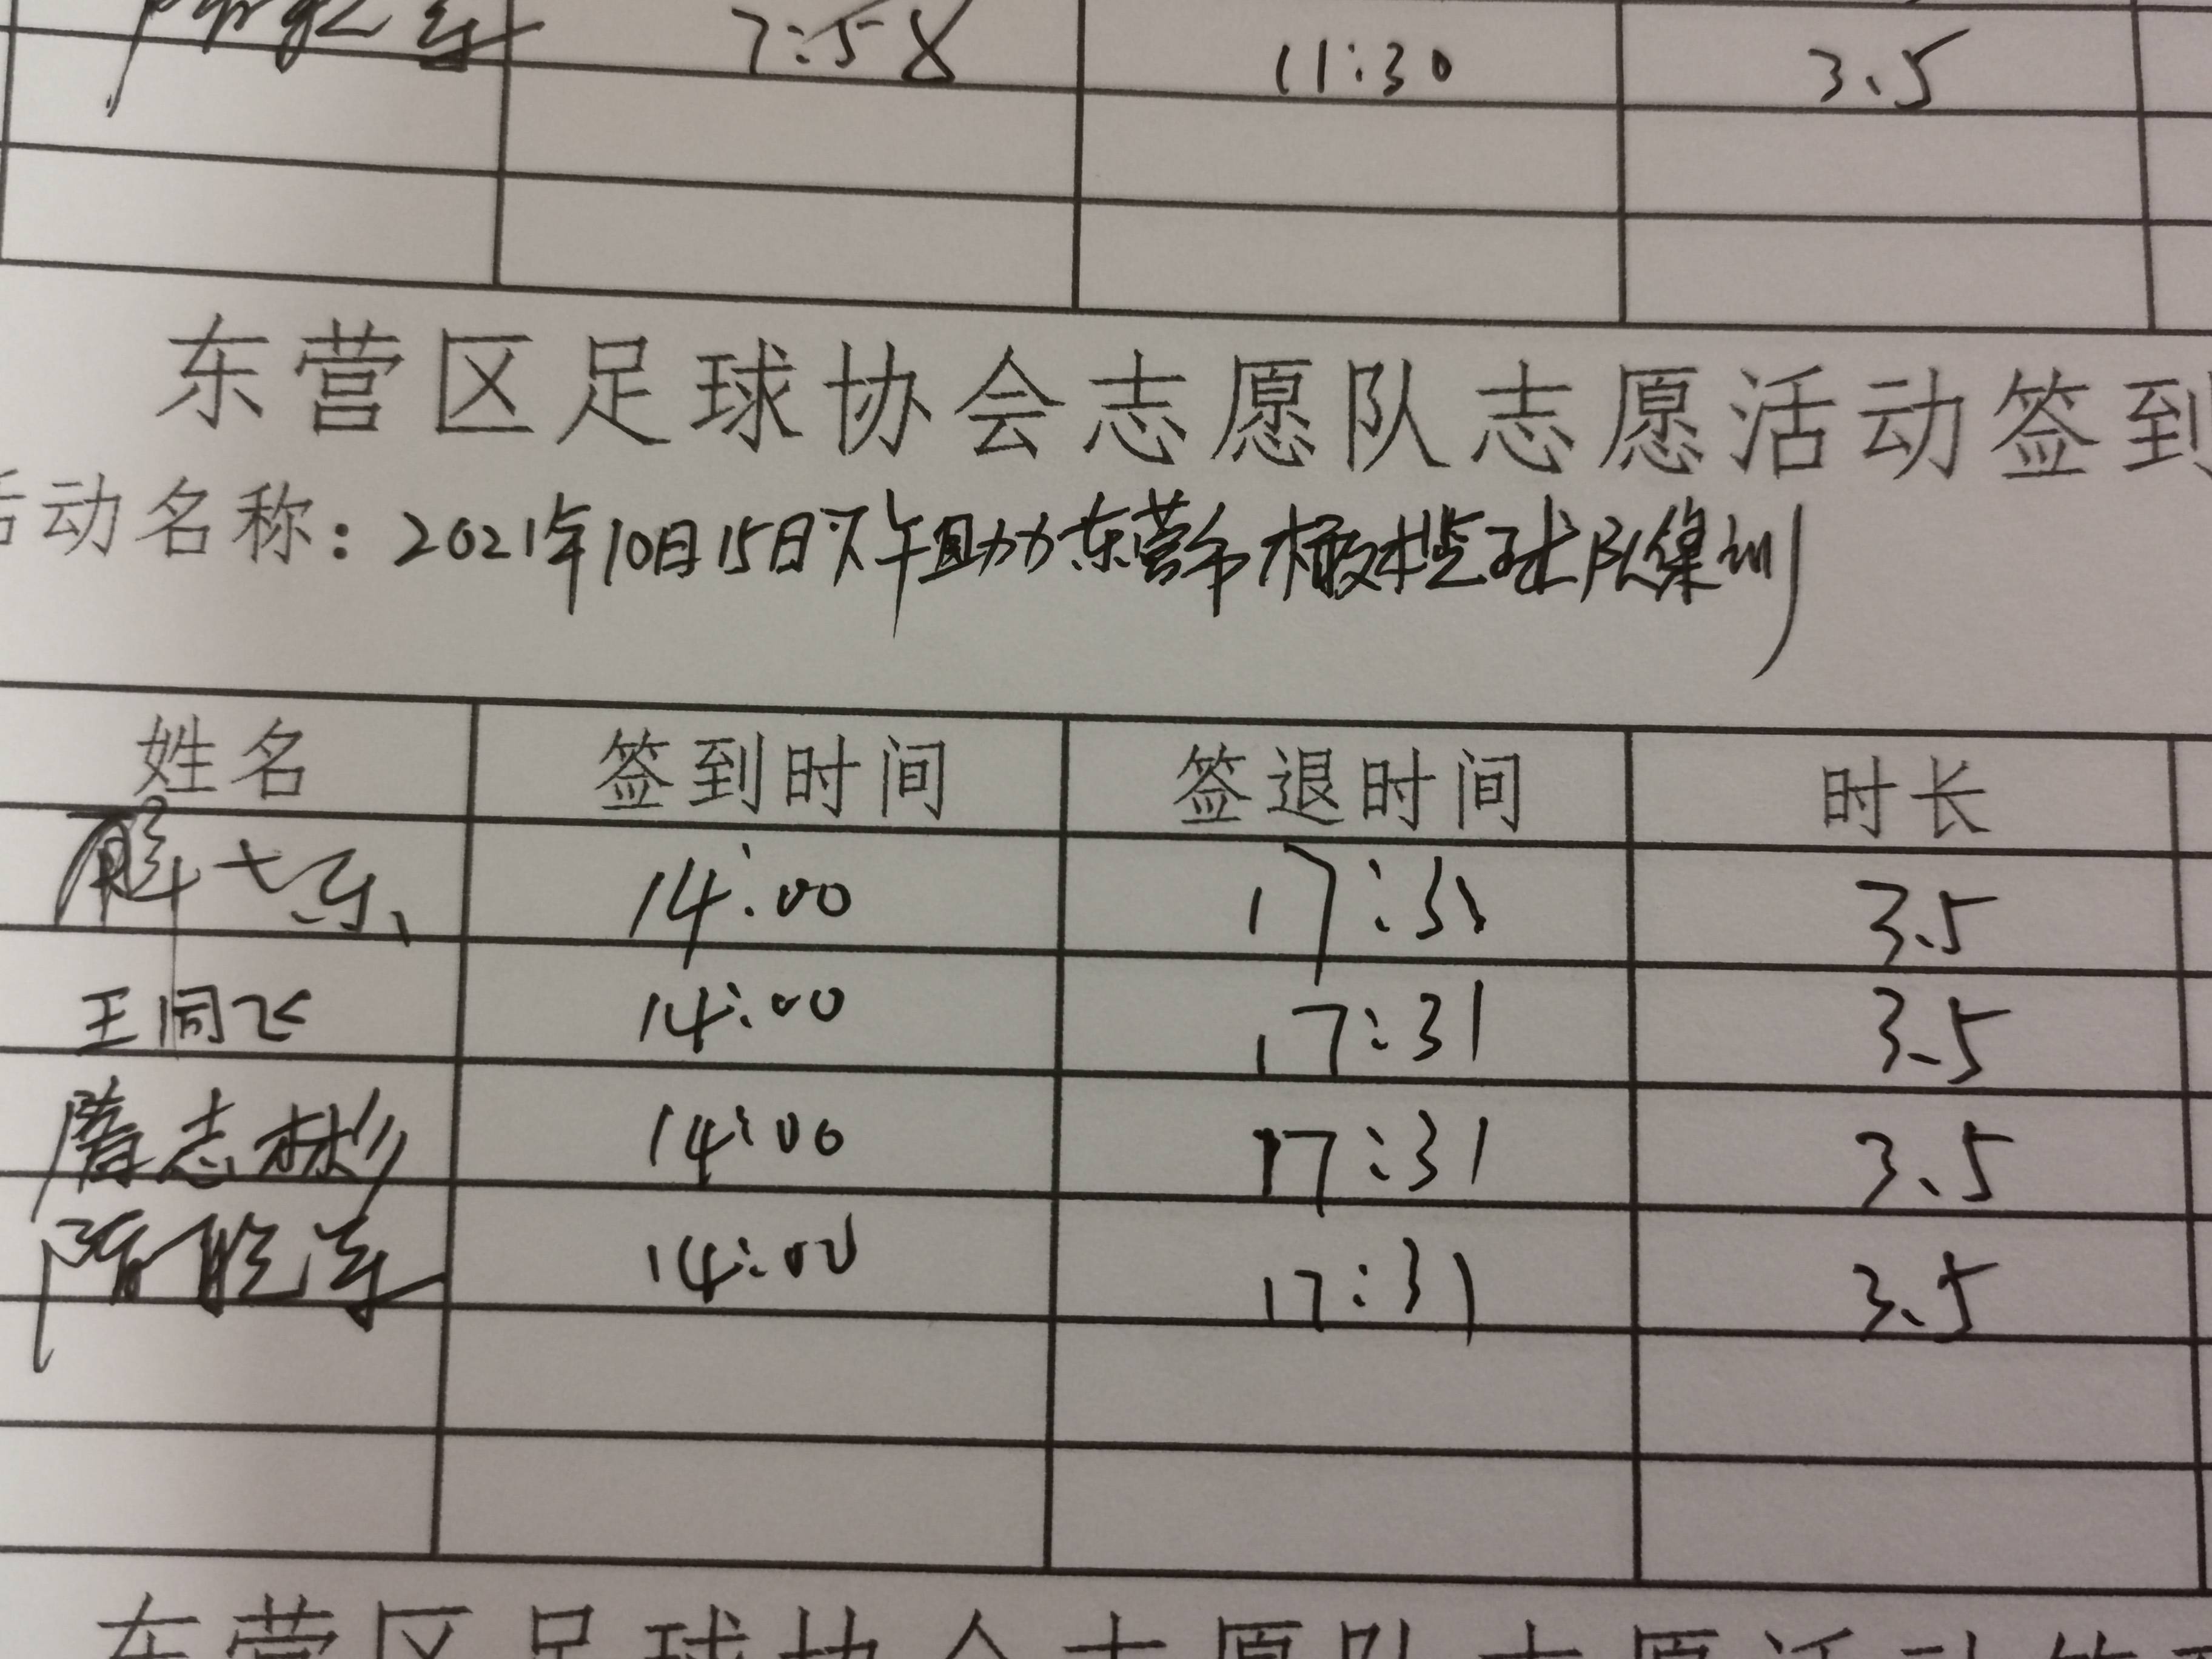 7:58 11:30 3.5
东营区足球协会志愿队志愿活动签到
活动名称：2021年10月15日下午助力东营市橄榄球队集训
姓名 签到时间 签退时间 时长
14:00 17:31 3.5
王同飞 14:00 17:31 3.5
隋志彬 14:00 17:31 3.5
14:00 17:31 3.5
东营区足球协会志愿队志愿活动签到